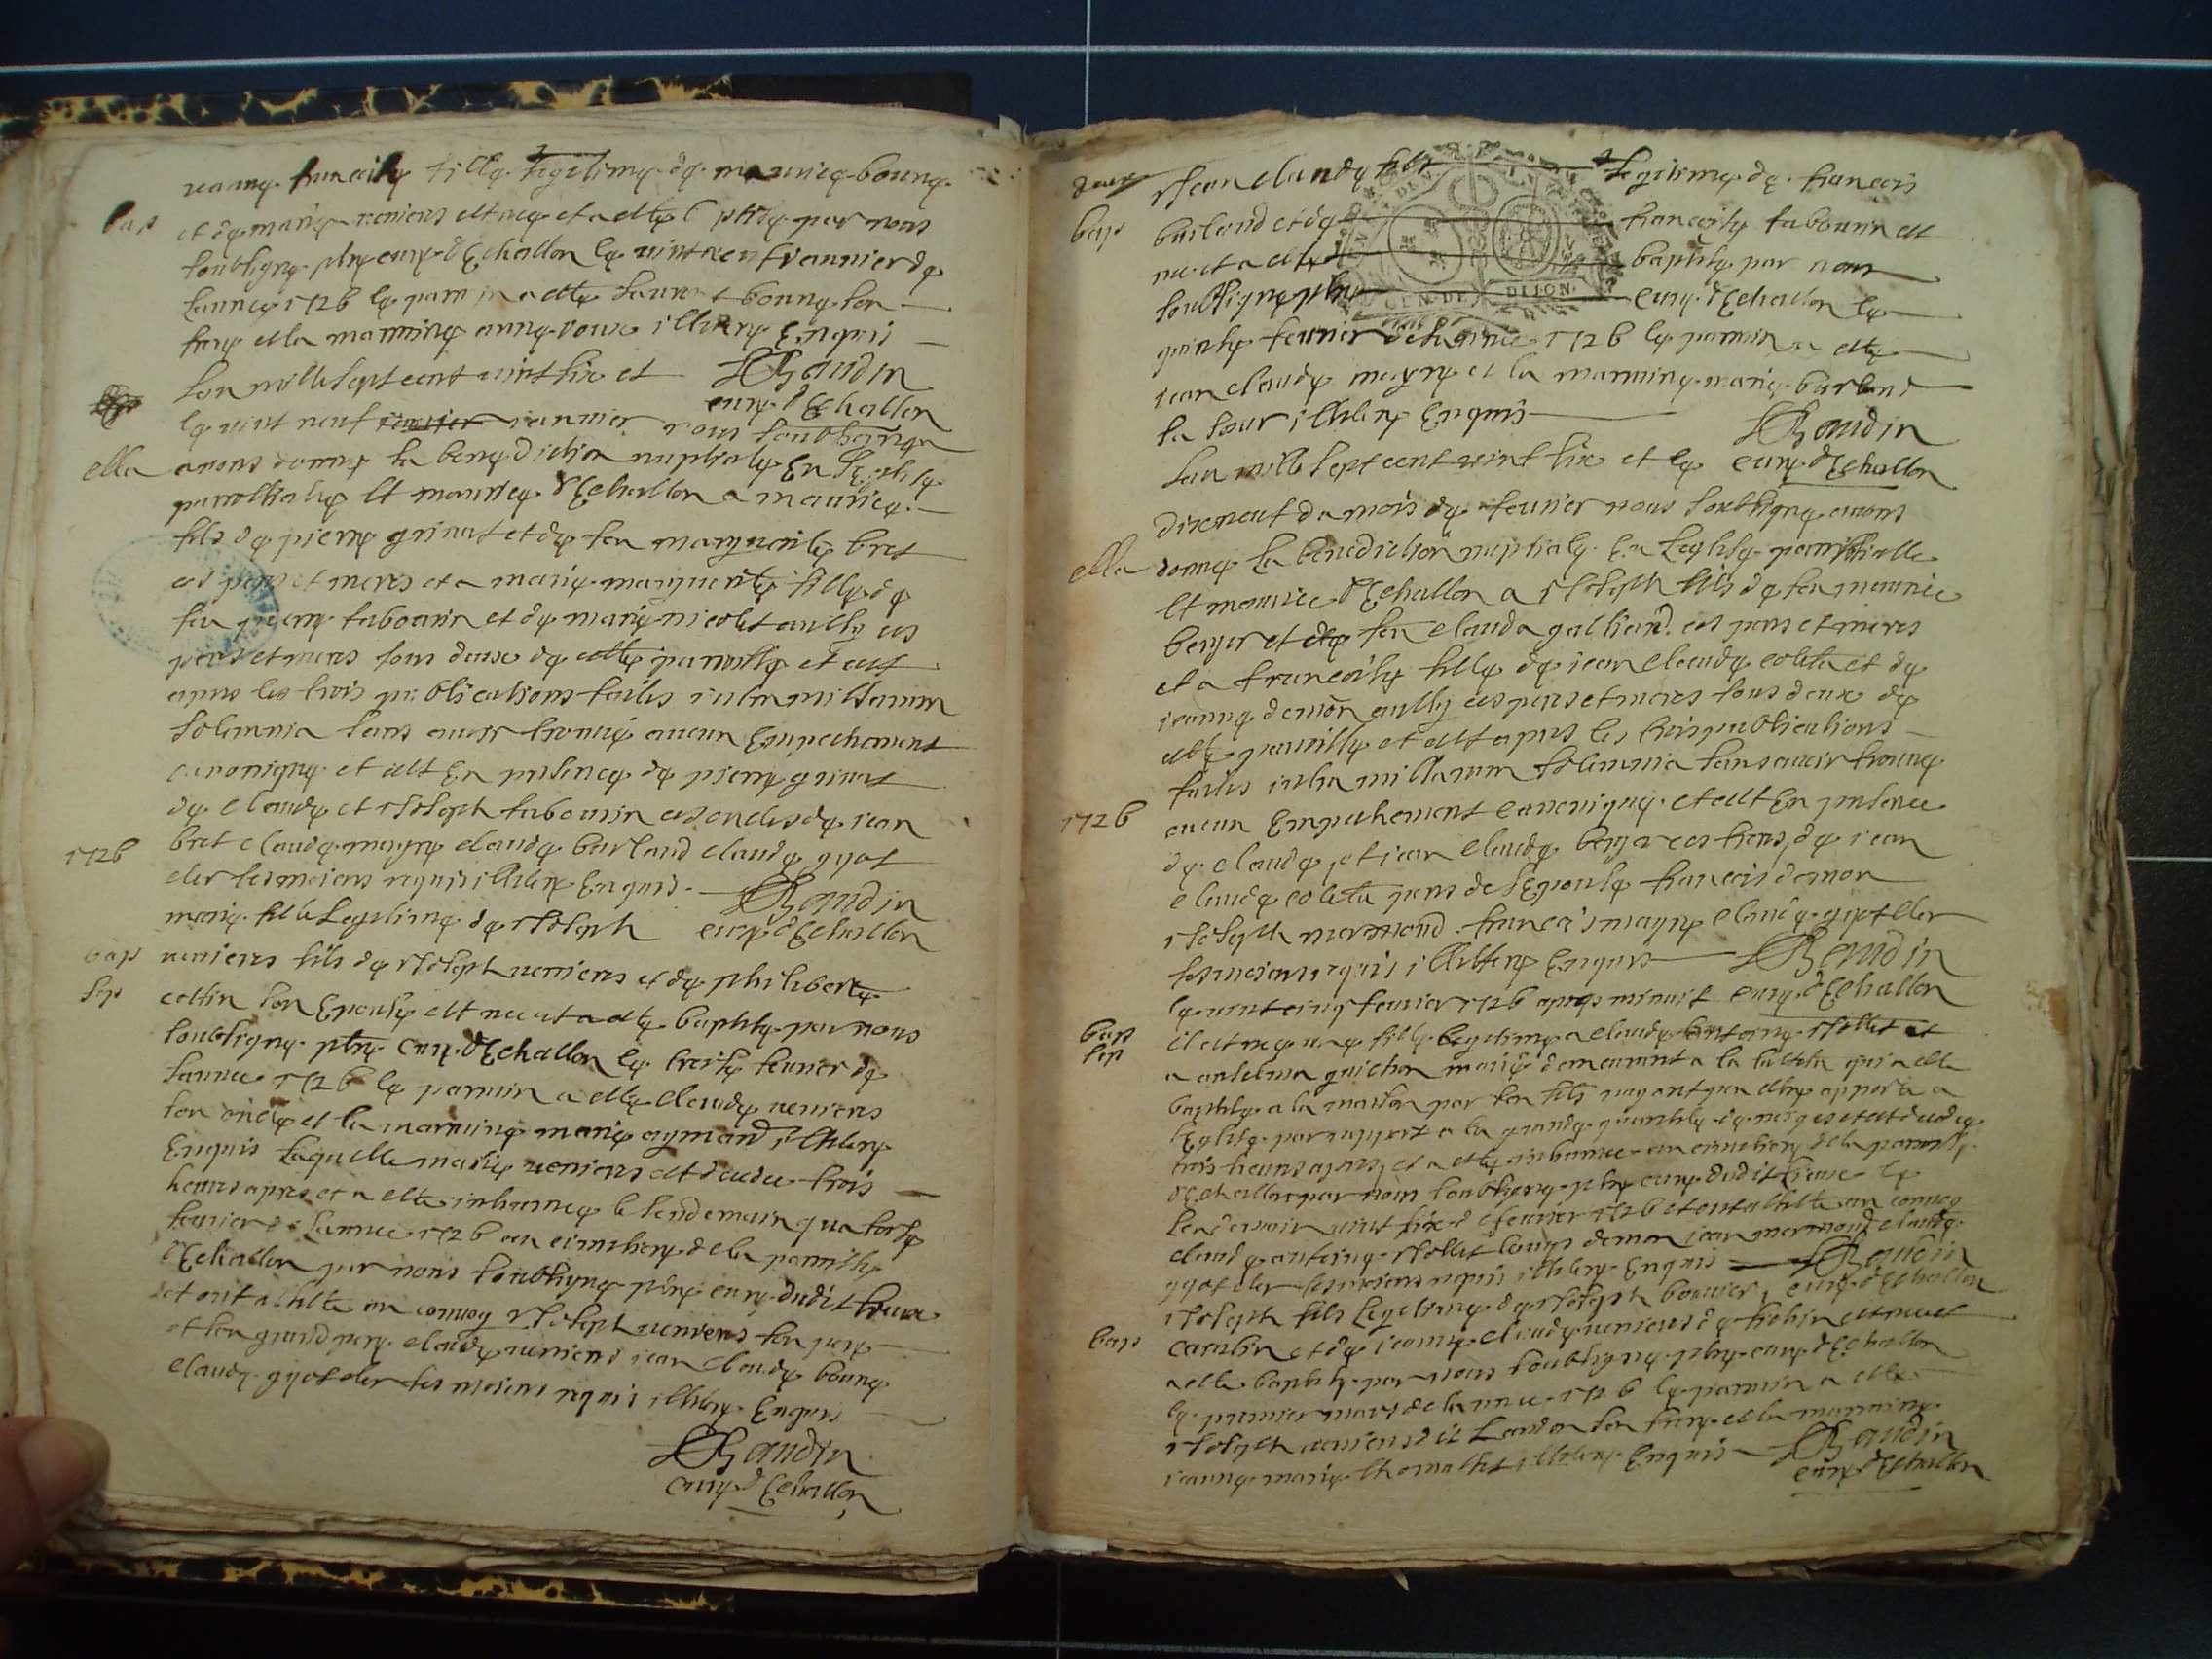 francoise fille legitime de maurice bonne
bap
et de marie reniers est nee et a este baptise par nous
soubsigne ptre cure d'Echallon le vint neuf iannier de
lannee 1726 le parain a este laurent bonne son
frere et la marrinne anne roux illitere Enquis
lan mille sept cent vint six et
Baudin
cure d'Echallon
le vint neuf iannier nous soubsigne
ella
avons donne la benediction nuptiale En Leglise
parrossialle st maurice d'Echallon a maurice
fils de pierre grinat et de feu marguerite bret
ces peres et meres et a marie marguerite fille de
feu pierre tabourin et de marie nicolet aussy ces
peres et meres tous deux de cette paroisse et cest
apres les trois publications faites inter missarum
solemnia sans avoir trouve aucun Empechement
canonique et cest En presence de pierre grinat
de claude et Joseph tabourin ces oncles de iean
1726
bret claude mayre claude burland claude gyot
cler tesmoiens requis illitere Enquis
Baudin
cure d'Echallon
marie fille Legitime de Joseph
bap
sep
veniers fils de Joseph veniers et de philiberte
collin son Epouse est nee et a este baptise par nous
soubsigne ptre cure d'Echallon le treise feurier de
lannee 1726 le parrain a este claude veniers
son oncle et la marrinne marie aymand illitere
Enquis Laquelle marie veniers est decedee trois
heures apres et a este inhumee le lendemain quatorse
feurier de lannee 1726 au cimetiere de la paroisse
d'Echallon par nous soubsigne ptre cure dudit lieux
et ont assiste au convoy Joseph veniers son pere
et son grand pere claude veniers iean claude bonne
claude gyot cler tesmoiens requis illitere Enquis
Baudin
cure d'Echallon
deux
Jean claude fils legitime de francois
bap
burland et de francoise tabourin est
ne et a este baptise par nous
soubsigne ptre cure d'Echallon le
quinse feurier de lannee 1726 le parrain a este
iean claude mayre et la marrinne marie burland
sa soeur illitere Enquis
Baudin
cure d'Echallon
GEN. DE DIJON
lan mille sept cent vint six et le
dixneuf du mois de feurier nous soubsigne avons
ella
donne la benediction nuptiale En Leglise parrossialle
st maurice d'Echallon a Joseph fils de feu maurice
berger et de feu clauda galliand ces peres et meres
et a francoise fille de iean claude coleta et de
ieanne demon aussy ces peres et meres tous deux de
cette paroisse et cest apres les trois publications
faites inter missarum solemnia sans avoir trouve
1726
aucun Empechement canonique et cest En presence
de claude et iean claude berger ces freres de iean
claude coleta pere de l'Epouse francois demon
Joseph mermond francois mayre claude gyot cler
tesmoiens requis illitere Enquis
Baudin
cure d'Echallon
le vint cinq feurier 1726 apres minuit
bap
sep
il est nee une fille legitime a claude antoine Jollet et
a anthelma guichon mariés demeurant a la qui a este
baptise a la maison par son fils nayant peu estre apporte a
l'Eglise par rapport a la grande quantite de neiges et est decede
trois heures apres et a este inhumee au cimetiere de la paroisse
d'Echallon par nous soubsigne ptre cure dudit lieux le
lendemain vint six de feurier 1726 et ont assiste au convoy
claude antoine Jollet louys demon iean mermond claude
gyot cler tesmoiens requis illitere Enquis
Baudin
cure d'Echallon
Joseph fils Legitime de Joseph bonnier
bap
carabin et de ieanne claude veniers est ne et
a este baptise par nous soubsigne ptre cure d'Echallon
le premier mars de lannee 1726 le parrain a este
Joseph veniers dit Landon son frere et la marrinne
ieanne marie thomasset illitere Enquis
Baudin
cure d'Echallon